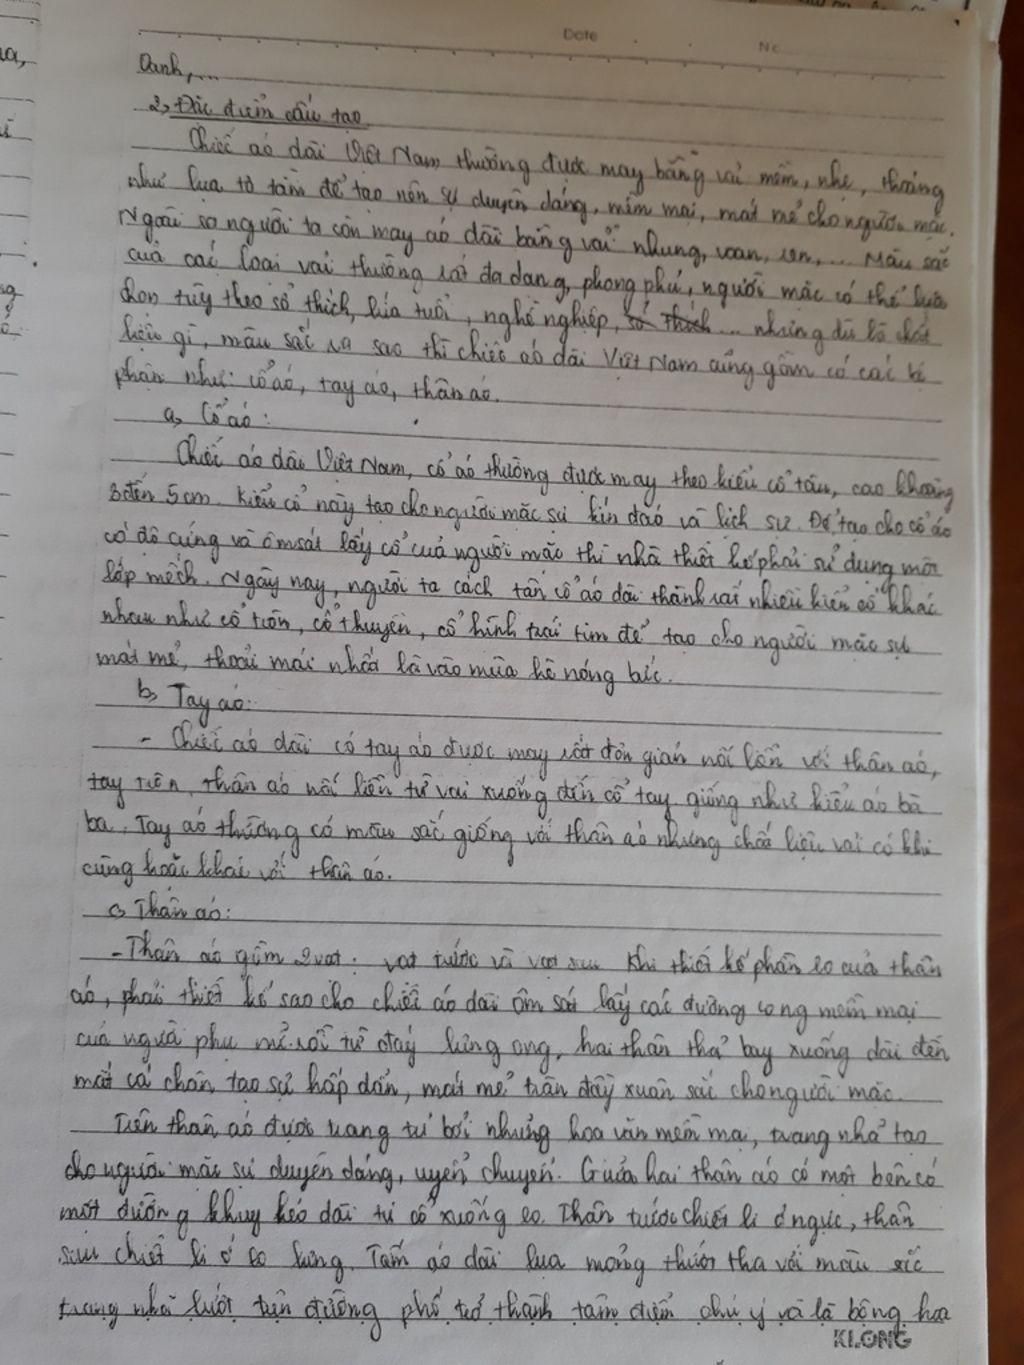 Date No
Oanh,...
2, Đặc điểm cấu tạo
Chiếc áo dài Việt Nam thường được may bằng vải mềm, nhẹ, thoáng
như lụa tơ tằm để tạo nên sự duyên dáng, mềm mại, mát mẻ cho người mặc.
Ngoài ra người ta còn may áo dài bằng vải nhung, voan, ren,... Màu sắc
của các loại vải thường rất đa dạng, phong phú, người mặc có thể lựa
chọn tùy theo sở thích, lứa tuổi, nghề nghiệp, sở thích ... nhưng dù là chất
liệu gì, màu sắc ra sao thì chiếc áo dài Việt Nam cũng gồm có các bộ
phận như: cổ áo, tay áo, thân áo.
a, Cổ áo:
Chiếc áo dài Việt Nam, cổ áo thường được may theo kiểu cổ tàu, cao khoảng
3 đến 5 cm. Kiểu cổ này tạo cho người mặc sự kín đáo và lịch sự. Để tạo cho cổ áo
có độ cứng và ôm sát lấy cổ của người mặc thì nhà thiết kế phải sử dụng một
lớp mếch. Ngày nay, người ta cách tân cổ áo dài thành rất nhiều kiểu cổ khác
nhau như cổ tròn, cổ thuyền, cổ hình trái tim để tạo cho người mặc sự
mát mẻ, thoải mái nhất là vào mùa hè nóng bức.
b, Tay áo:
- Chiếc áo dài có tay áo được may rất đơn giản nối liền với thân áo,
tay trên, thân áo nối liền từ vai xuống đến cổ tay giống như kiểu áo bà
ba. Tay áo thường có màu sắc giống với thân áo nhưng chất liệu vải có khi
cùng hoặc khác với thân áo.
c, Thân áo:
- Thân áo gồm 2 vạt: vạt trước và vạt sau. Khi thiết kế phần eo của thân
áo, phải thiết kế sao cho chiếc áo dài ôm sát lấy các đường cong mềm mại
của người phụ nữ rồi từ đáy lưng ong, hai thân thả bay xuống dài đến
mắt cá chân tạo sự hấp dẫn, mát mẻ tràn đầy xuân sắc cho người mặc.
Trên thân áo được trang trí bởi những hoa văn mềm mại, trang nhã tạo
cho người mặc sự duyên dáng, uyển chuyển. Giữa hai thân áo có một bên có
một đường khuy kéo dài từ cổ xuống eo. Thân trước chiết li ở ngực, thân
sau chiết li ở eo lưng. Tấm áo dài lụa mỏng thướt tha với màu sắc
trang nhã lướt trên đường phố trở thành tâm điểm chú ý và là bông hoa
KLONG